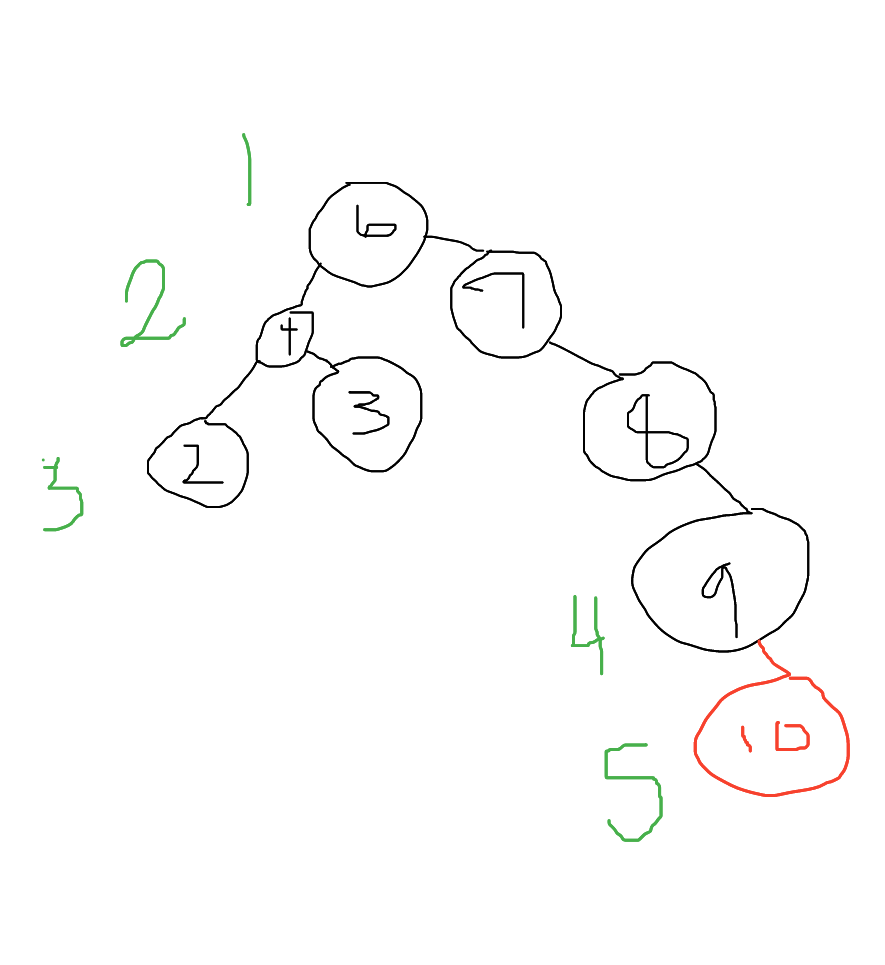 1
6
2
7
4
3
8
2
3
9
4
10
5